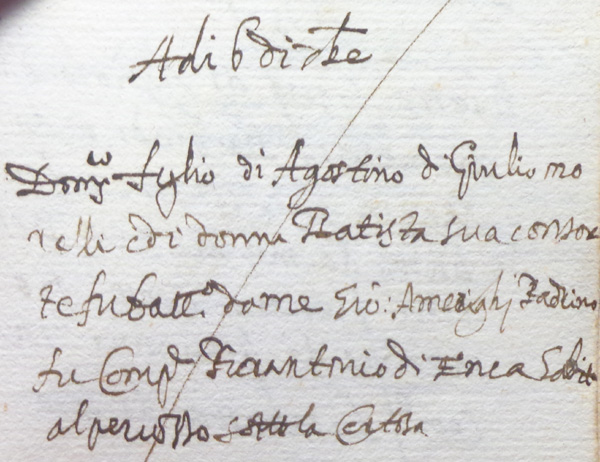 Adi 6 di xbre
Domco figlio di Agostino di Giulio mo
relli e di donna Batista sua consor
te fu batto da me Gio: Amerighi Padrino
fu Comp Fra antonio di Enea
al sotto la Certosa